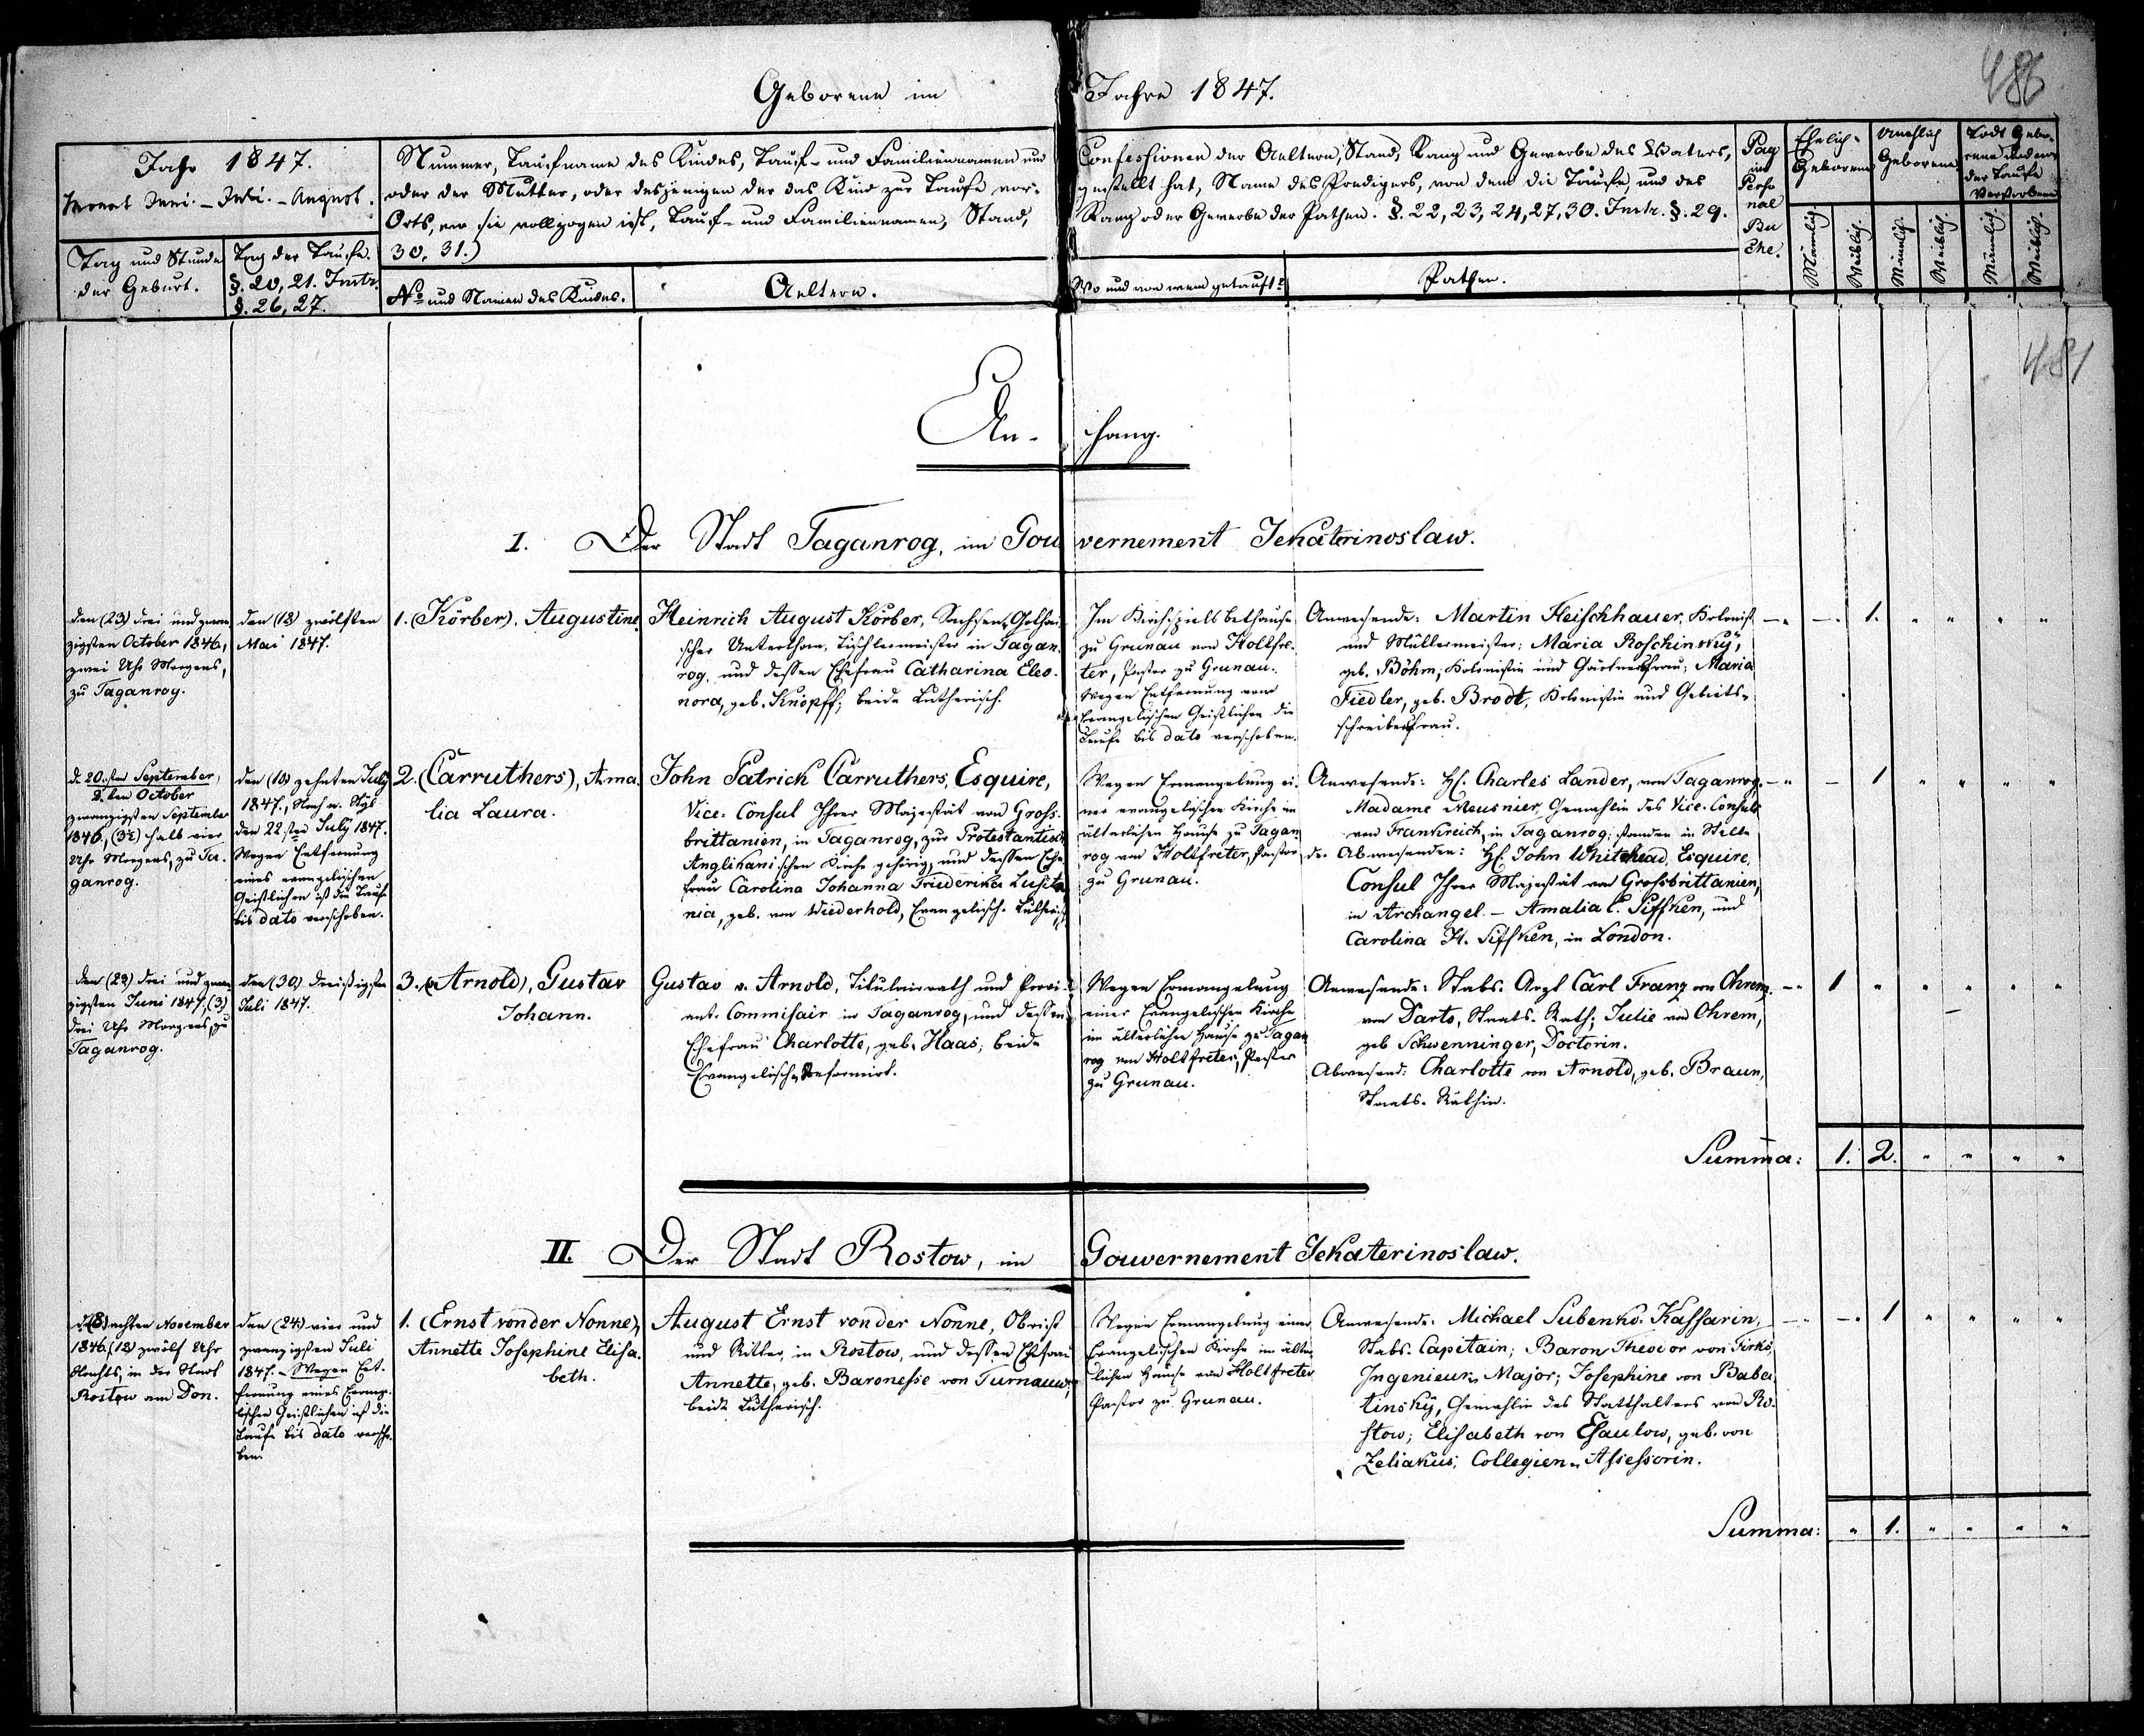 486
Geborene im Jahre 1847.
Jahr 1847.
Monat Juni. - Juli. - August.
Tag und Stunde
der Geburt.
Tag der Taufe.
§. 20, 21. Instr.
§. 26, 27.
Nummer, Taufname des Kindes, Tauf- und Familiennamen und
oder der Mutter, oder desjenigen der das Kind zur Taufe vor-
Orts, wo sie vollzogen ist, Tauf- und Familiennamen, Stand,
30. 31.)
No und Namen des Kindes.
Aeltern.
Confessionen der Aeltern, Stand, Rang und Gewerbe des Vaters,
gestellt hat, Name des Predigers, von dem die Taufe, und des
Rang oder Gewerbe der Pathen. §. 22, 23, 24, 27, 30. Instr. §. 29.
Wo und von wem getauft?
Pathen.
Pag
im
Perso
nal
Bu
che.
Ehelich-
Geborene
Unehlich
Geborene
Todt Gebo-
rene und vor
der Taufe
Verstorbene
Männlich.
Weiblich.
Männlich.
Weiblich.
Männlich.
Weiblich.
481
An- hang.
I. Der Stadt Taganrog, im Gouvernement Jekaterinoslaw.
den (23) drei und zwan
zigsten October 1846,
zwei Uhr Morgens,
zu Taganrog.
den (12) zwölften
Mai 1847.
1. (Körber). Augustine.
Heinrich August Körber, Sachsen-Gothai-
scher Unterthan, Tischlermeister in Tagan-
rog, und dessen Ehefrau Catharina Eleo-
nora, geb. Knöpff; beide Lutherisch.
Im Kirchspielsbethause
zu Grunau von Holtfre-
ter, Pastor zu Grunau.
Wegen Entfernung vom
Evangelischen Geistlichen die
Taufe bis dato verschoben.
Anwesende: Martin Fleischhauer, Kolonist
und Müllermeister; Maria Roschinsky,
geb. Böhm, Kolonistin und Gärtnersfrau; Maria
Fiedler, geb. Brodt, Kolonistin und Gebiets-
schreibersfrau.
1.
d. 20.sten September,
2.ten October
zwanzigsten September
1846, (3½) halb vier
Uhr Morgens, zu Ta-
ganrog.
den (10) zehnten July
1847., Nach n. Styl
den 22sten July 1847.
Wegen Entfernung
eines evangelischen
Geistlichen ist die Taufe
bis dato verschoben.
2. (Carruthers), Ama-
lia Laura.
John Patrick Carruthers, Esquire,
Vice-Consul Ihrer Majestät von Gross-
brittanien, in Taganrog, zur Protestantisch
Anglikanischen Kirche gehörig, und dessen Ehe-
frau Carolina Johanna Friederika Lusita-
nia, geb. von Wiederhold, Evangelisch-Lutherisch.
Wegen Ermangelung ei-
ner evangelischen Kirche im
älterlichen Hause zu Tagan-
rog von Holtfreter, Pastor
zu Grunau.
Anwesende: H. Charles Lander, von Taganrog.
Madame Meusnier, Gemahlin des Vice-Consuls
von Frankreich, in Taganrog; standen in Stelle
der Abwesenden: H. John Whitehead, Esquire,
Consul Ihrer Majestät von Grossbrittanien,
in Archangel. - Amalia C. Siffken, und
Carolina H. Siffken, in London.
1
den (23) drei und zwan-
zigsten Juni 1847, (3)
drei Uhr Morgens, zu
Taganrog.
den (30) dreißigsten
Juli 1847.
3. (v. Arnold), Gustav
Johann.
Gustav v. Arnold, Titulairrath und Provi-
ant-Commissair in Taganrog, und dessen
Ehefrau Charlotte, geb. Haas; beide
Evangelisch-Reformirt.
Wegen Ermangelung
einer Evangelischen Kirche
im älterlichen Hause zu Tagan
rog von Holtfreter, Pastor
zu Grunau.
Anwesende: Stabs-Arzt Carl Franz von Ohrem,
von Darto, Staats-Rath; Julie von Ohrem,
geb Schwenninger, Doctorin.
Abwesend: Charlotte von Arnold, geb. Braun,
Staats-Räthin.
1
Summa: 1. 2.
II. Der Stadt Rostow, im Gouvernement Jekaterinoslaw.
d. (8) achten November
1846. (12) zwölf Uhr
Nachts, in der Stadt
Rostow am Don.
den (24) vier und
zwanzigsten Juli
1847. - Wegen Ent-
fernung eines Evange-
lischen Geistlichen ist die
Taufe bis dato verscho-
ben.
1. (Ernst von der Nonne),
Annette Josephine Elisa-
beth.
August Ernst von der Nonne, Obrist
und Ritter, in Rostow, und dessen Ehefrau
Annette, geb. Baronesse von Turnauw;
beide Lutherisch.
Wegen Ermangelung einer
Evangelischen Kirche im älter-
lichen Hause von Holtfreter
Pastor zu Grunau.
Anwesende: Michael Subenko-Kassarin,
Stabs-Capitain; Baron Theodor von Firks,
Ingenieur-Major; Josephine von Baba-
tinsky, Gemahlin des Statthalters von Ro-
stow; Elisabeth von Esaulow, geb. von
Zeliakus, Collegien-Assessorin.
1
Summa: 1.